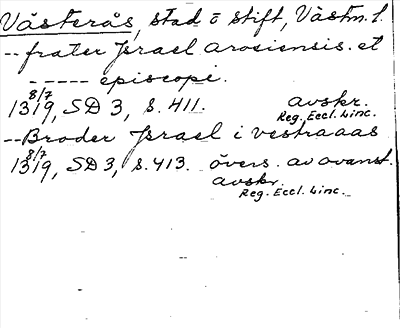 Västerås, stad o stift, Västm. l.
-- frater Israel arosiensis. et
- - - - - episcopi.
8/7 1319, SD 3, s. 411. avskr.
Reg. Eccl. Linc.
-- Broder Israel i vestraaas
8/7 1319, SD 3, s. 413. övers. av ovanst.
avskr.
Reg. Eccl. Linc.